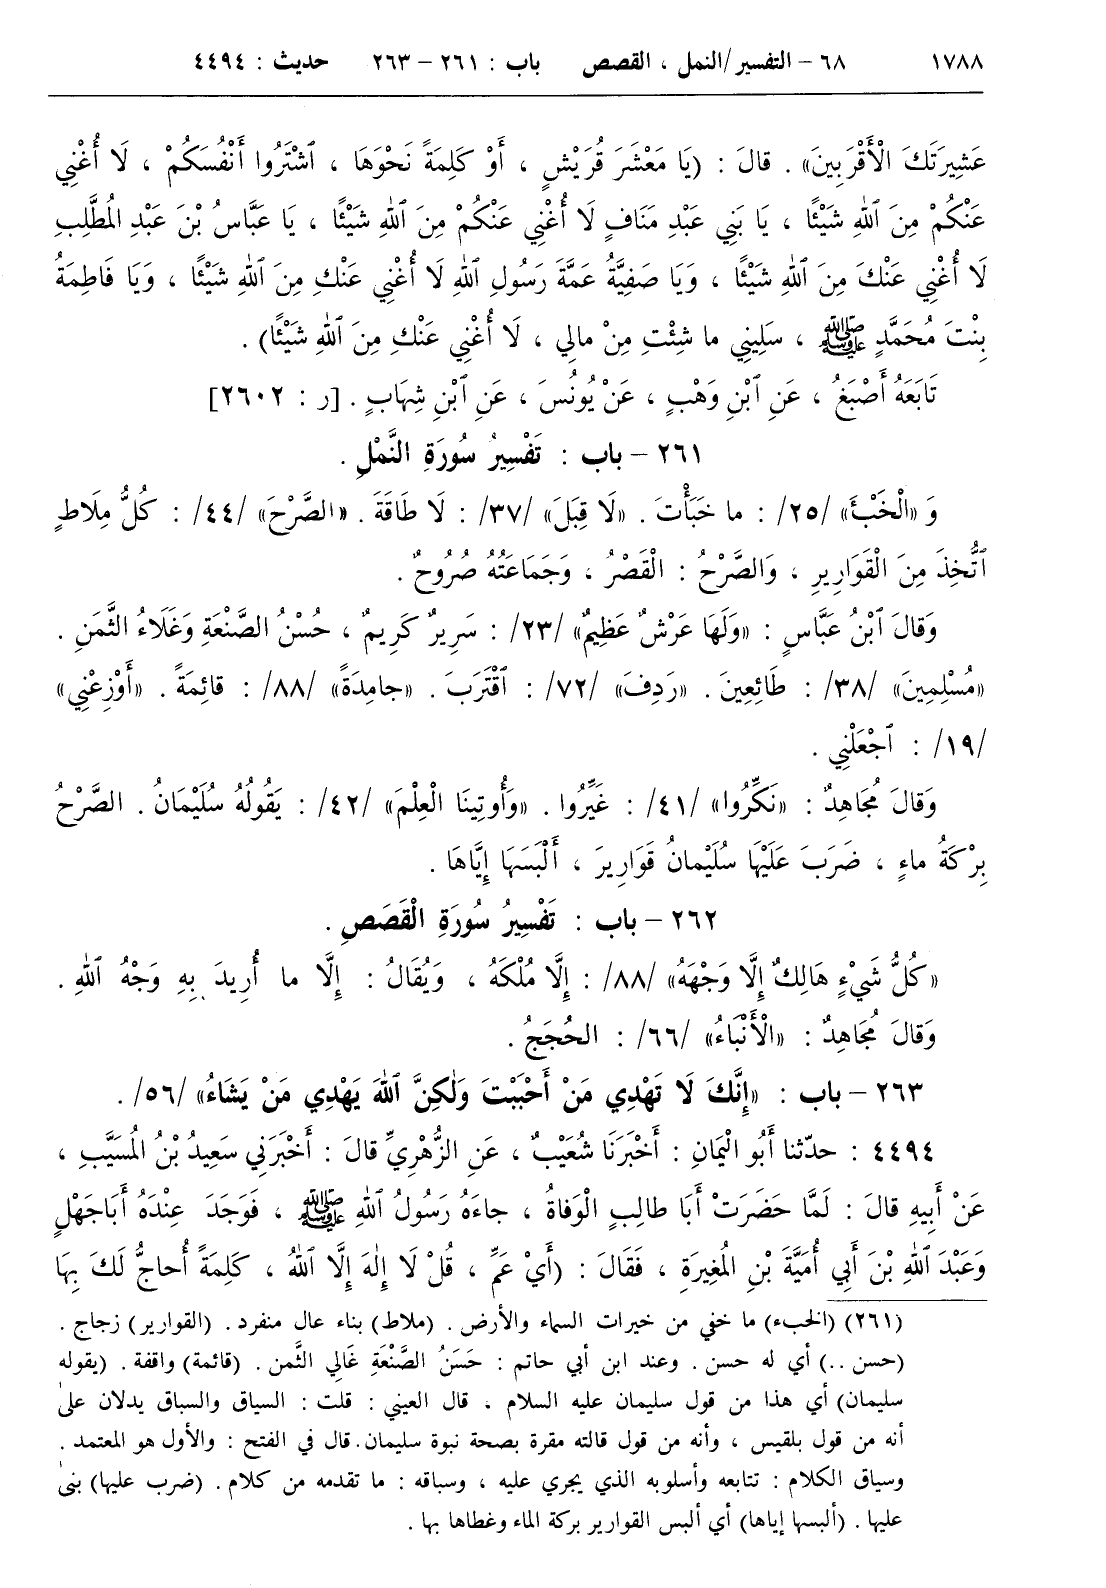 ١٧٨٨ ٦٨ - التفسير/النمل ، القصص باب : ٢٦١ - ٢٦٣ حديث : ٤٤٩٤
عَشِيرَتَكَ الْأَقْرَبِينَ» . قالَ : (يَا مَعْشَرَ قُرَيْشٍ ، أَوْ كَلِمَةً نَحْوَهَا ، ٱشْتَرُوا أَنْفُسَكُمْ ، لَا أُغْنِي
عَنْكُمْ مِنَ ٱللهِ شَيْئًا ، يَا بَنِي عَبْدِ مَنَافٍ لَا أُغْنِي عَنْكُمْ مِنَ ٱللهِ شَيْئًا ، يَا عَبَّاسُ بْنَ عَبْدِ المُطَّلِبِ
لَا أُغْنِي عَنْكَ مِنَ ٱللهِ شَيْئًا ، وَيَا صَفِيَّةُ عَمَّةَ رَسُولِ ٱللهِ لَا أُغْنِي عَنْكِ مِنَ ٱللهِ شَيْئًا ، وَيَا فَاطِمَةُ
بِنْتَ مُحَمَّدٍ ﷺ ، سَلِينِي ما شِئْتِ مِنْ مالِي ، لَا أُغْنِي عَنْكِ مِنَ ٱللهِ شَيْئًا) .
تَابَعَهُ أَصْبَغُ ، عَنِ ٱبْنِ وَهْبٍ ، عَنْ يُونُسَ ، عَنِ ٱبْنِ شِهَابٍ . [ر : ٢٦٠٢]
٢٦١ - باب : تَفْسِيرُ سُورَةِ النَّمْلِ .
وَ «الْخَبْءَ» /٢٥/ : ما خَبَأْتَ . «لَا قِبَلَ» /٣٧/ : لَا طَاقَةَ . «الصَّرْحَ» /٤٤/ : كُلُّ مِلَاطٍ
ٱتُّخِذَ مِنَ الْقَوَارِيرِ ، وَالصَّرْحُ : الْقَصْرُ ، وَجَمَاعَتُهُ صُرُوحٌ .
وَقالَ ٱبْنُ عَبَّاسٍ : «وَلَهَا عَرْشٌ عَظِيمٌ» /٢٣/ : سَرِيرٌ كَرِيمٌ ، حُسْنُ الصَّنْعَةِ وَغَلَاءُ الثَّمَنِ .
«مُسْلِمِينَ» /٣٨/ : طَائِعِينَ . «رَدِفَ» /٧٢/ : ٱقْتَرَبَ . «جامِدَةً» /٨٨/ : قائِمَةً . «أَوْزِعْنِي»
/١٩/ : ٱجْعَلْنِي .
وَقالَ مُجَاهِدٌ : «نَكِّرُوا» /٤١/ : غَيِّرُوا . «وَأُوتِينَا الْعِلْمَ» /٤٢/ : يَقُولُهُ سُلَيْمَانُ . الصَّرْحُ
بِرْكَةُ ماءٍ ، ضَرَبَ عَلَيْهَا سُلَيْمانُ قَوَارِيرَ ، أَلْبَسَهَا إِيَّاهَا .
٢٦٢ - باب : تَفْسِيرُ سُورَةِ الْقَصَصِ .
«كُلُّ شَيْءٍ هَالِكٌ إِلَّا وَجْهَهُ» /٨٨/ : إِلَّا مُلْكَهُ ، وَيُقَالُ : إِلَّا ما أُرِيدَ بِهِ وَجْهُ ٱللهِ .
وَقالَ مُجَاهِدٌ : «الْأَنْبَاءُ» /٦٦/ : الحُجَجُ .
٢٦٣ - باب : «إِنَّكَ لَا تَهْدِي مَنْ أَحْبَبْتَ وَلٰكِنَّ ٱللهَ يَهْدِي مَنْ يَشَاءُ» /٥٦/ .
٤٤٩٤ : حدّثنا أَبُو الْيَمَانِ : أَخْبَرَنَا شُعَيْبٌ ، عَنِ الزُّهْرِيِّ قالَ : أَخْبَرَنِي سَعِيدُ بْنُ المُسَيَّبِ ،
عَنْ أَبِيهِ قالَ : لَمَّا حَضَرَتْ أَبَا طالِبٍ الْوَفاةُ ، جاءَهُ رَسُولُ ٱللهِ ﷺ ، فَوَجَدَ عِنْدَهُ أَبَا جَهْلٍ
وَعَبْدَ ٱللهِ بْنَ أَبِي أُمَيَّةَ بْنِ المُغِيرَةِ ، فَقَالَ : (أَيْ عَمِّ ، قُلْ لَا إِلٰهَ إِلَّا ٱللهُ ، كَلِمَةً أُحاجُّ لَكَ بِهَا
(٢٦١) (الخبء) ما خفي من خيرات السماء والأرض . (ملاط) بناء عال منفرد . (القوارير) زجاج .
(حسن ..) أي له حسن . وعند ابن أبي حاتم : حَسَنُ الصَّنْعَةِ غَالِي الثَّمن . (قائمة) واقفة . (يقوله
سليمان) أي هذا من قول سليمان عليه السلام . قال العيني : قلت : السياق والسباق يدلان على
أنه من قول بلقيس ، وأنه من قول قالته مقرة بصحة نبوة سليمان . قال في الفتح : والأول هو المعتمد .
وسياق الكلام : تتابعه وأسلوبه الذي يجري عليه ، وسباقه : ما تقدمه من كلام . (ضرب عليها) بنى
عليها . (ألبسها إياها) أي ألبس القوارير بركة الماء وغطاها بها .